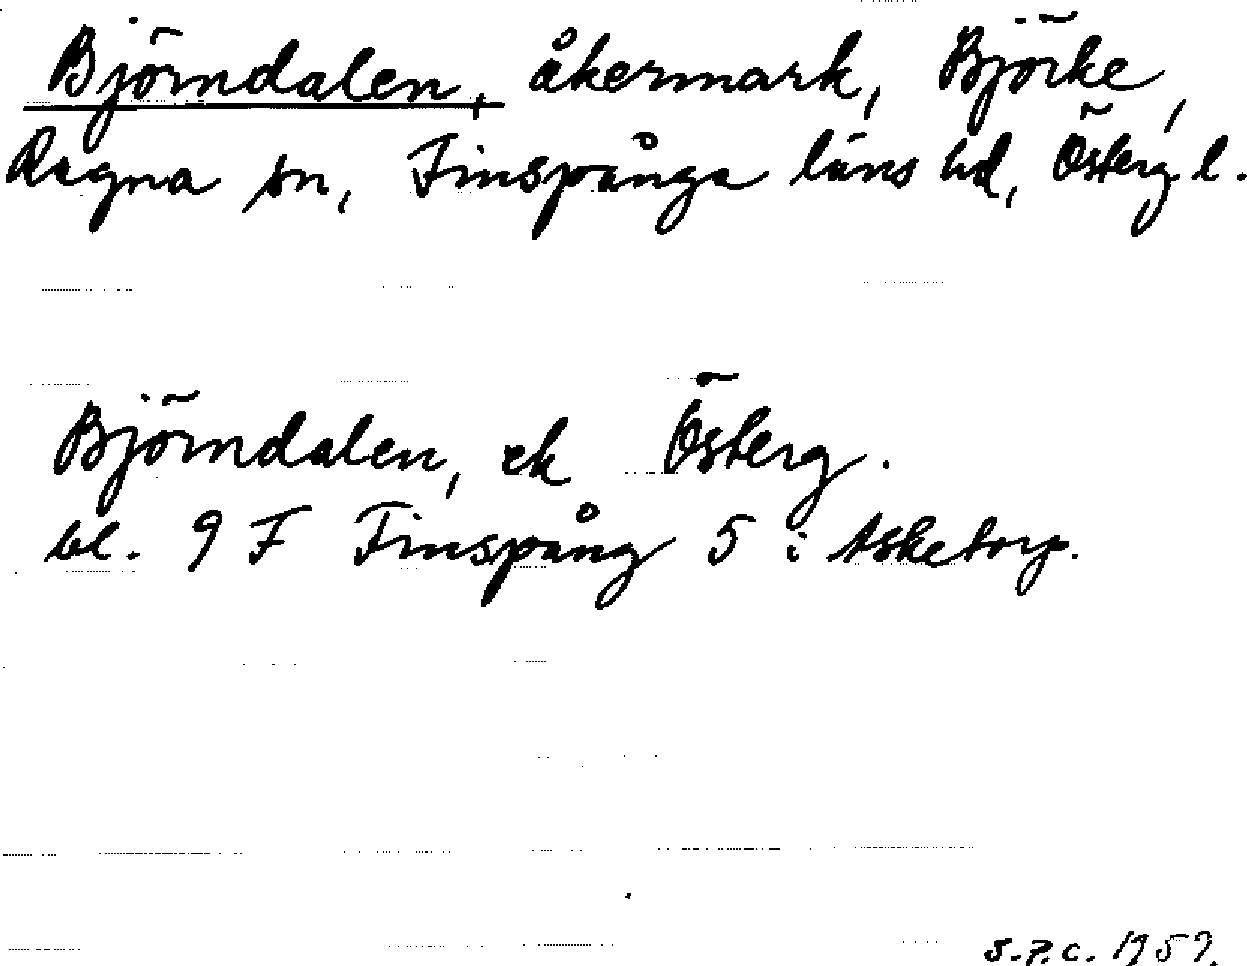 Björndalen, åkermark, Björke,
Regna sn, Finspånga läns hd, Österg. l.
Björndalen, ek Österg.
bl. 9 F Finspång 5 i Asketorp.
S.P.C. 1957.